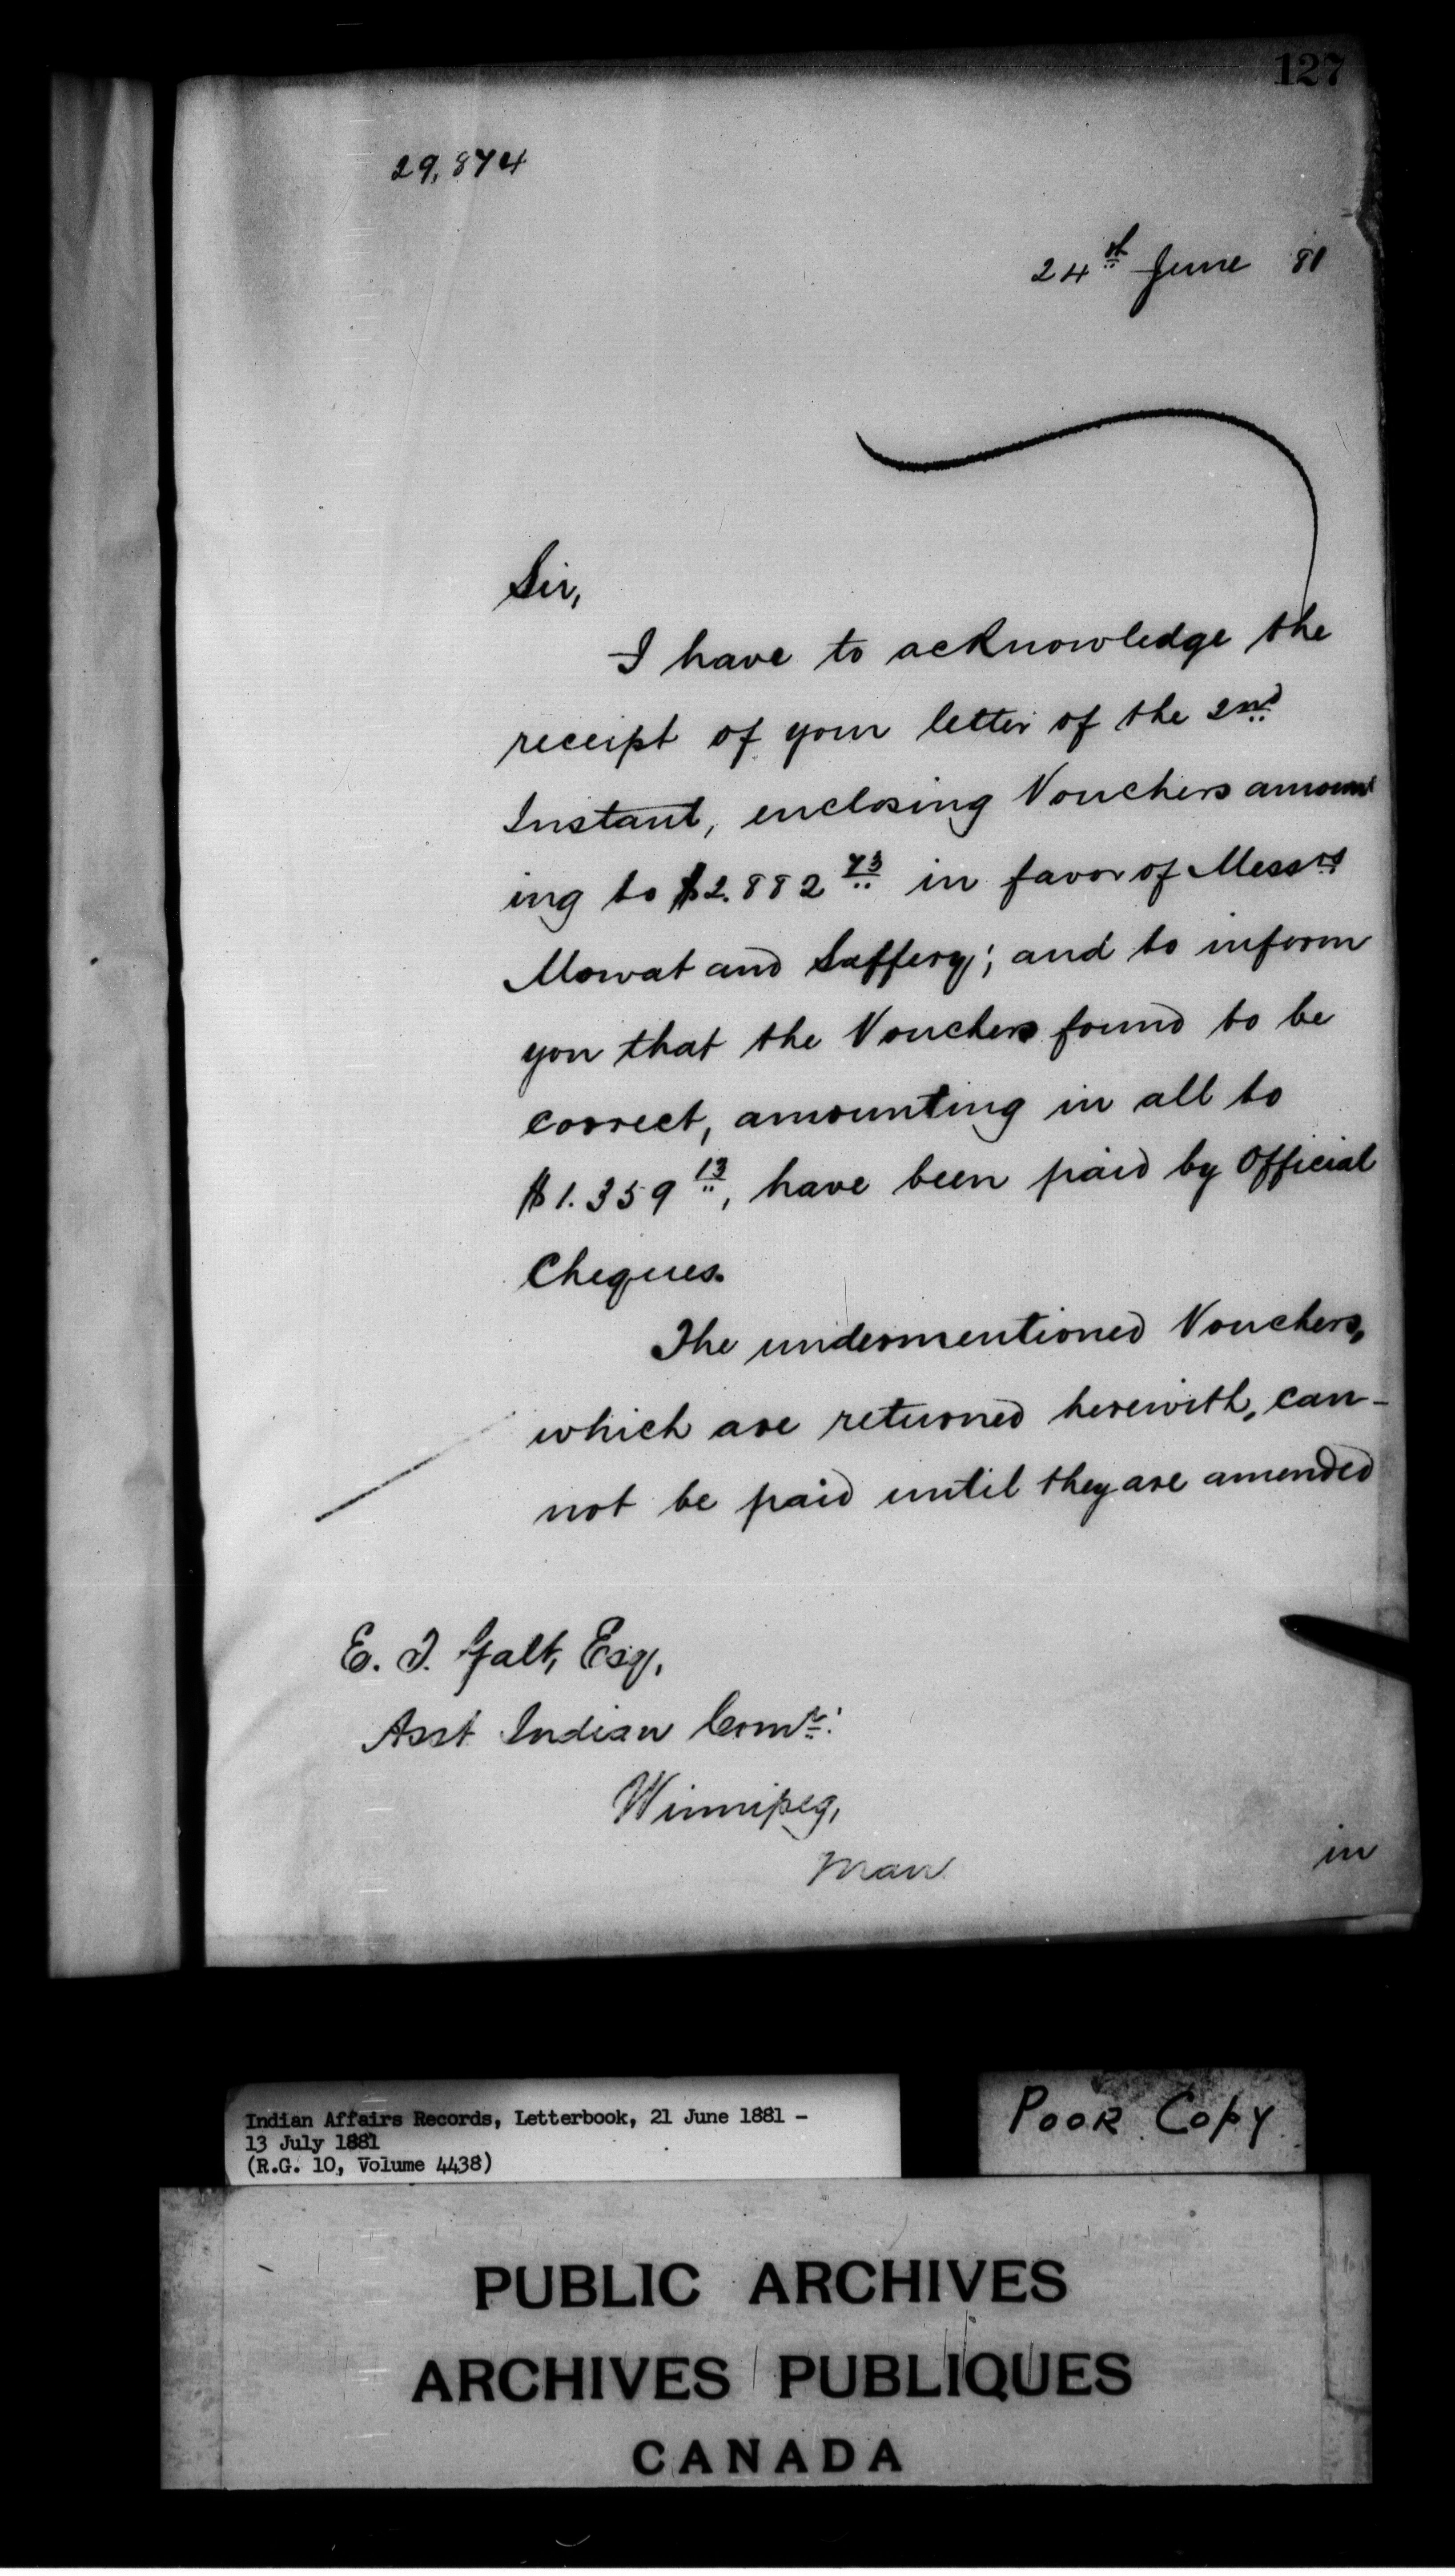 127
29,874
24th June 81
Sir,
I have to acknowledge the
receipt of your letter of the 2nd
Instant, enclosing Vouchers amount
ing to $2.882 73 in favor of Messrs
Mowat and Saffery; and to inform
you that the Vouchers found to be
correct, amounting in all to
$1.359 13, have been paid by Official
Cheques.
The undermentioned Vouchers,
which are returned herewith, can-
not be paid until they are amended
E. T. Galt, Esq,
Asst Indian Comr.
Winnipeg,
Man
in
Indian Affairs Records, Letterbook, 21 June 1881 -
13 July 1881
(R.G. 10, Volume 4438)
POOR COPY
PUBLIC ARCHIVES
ARCHIVES PUBLIQUES
CANADA